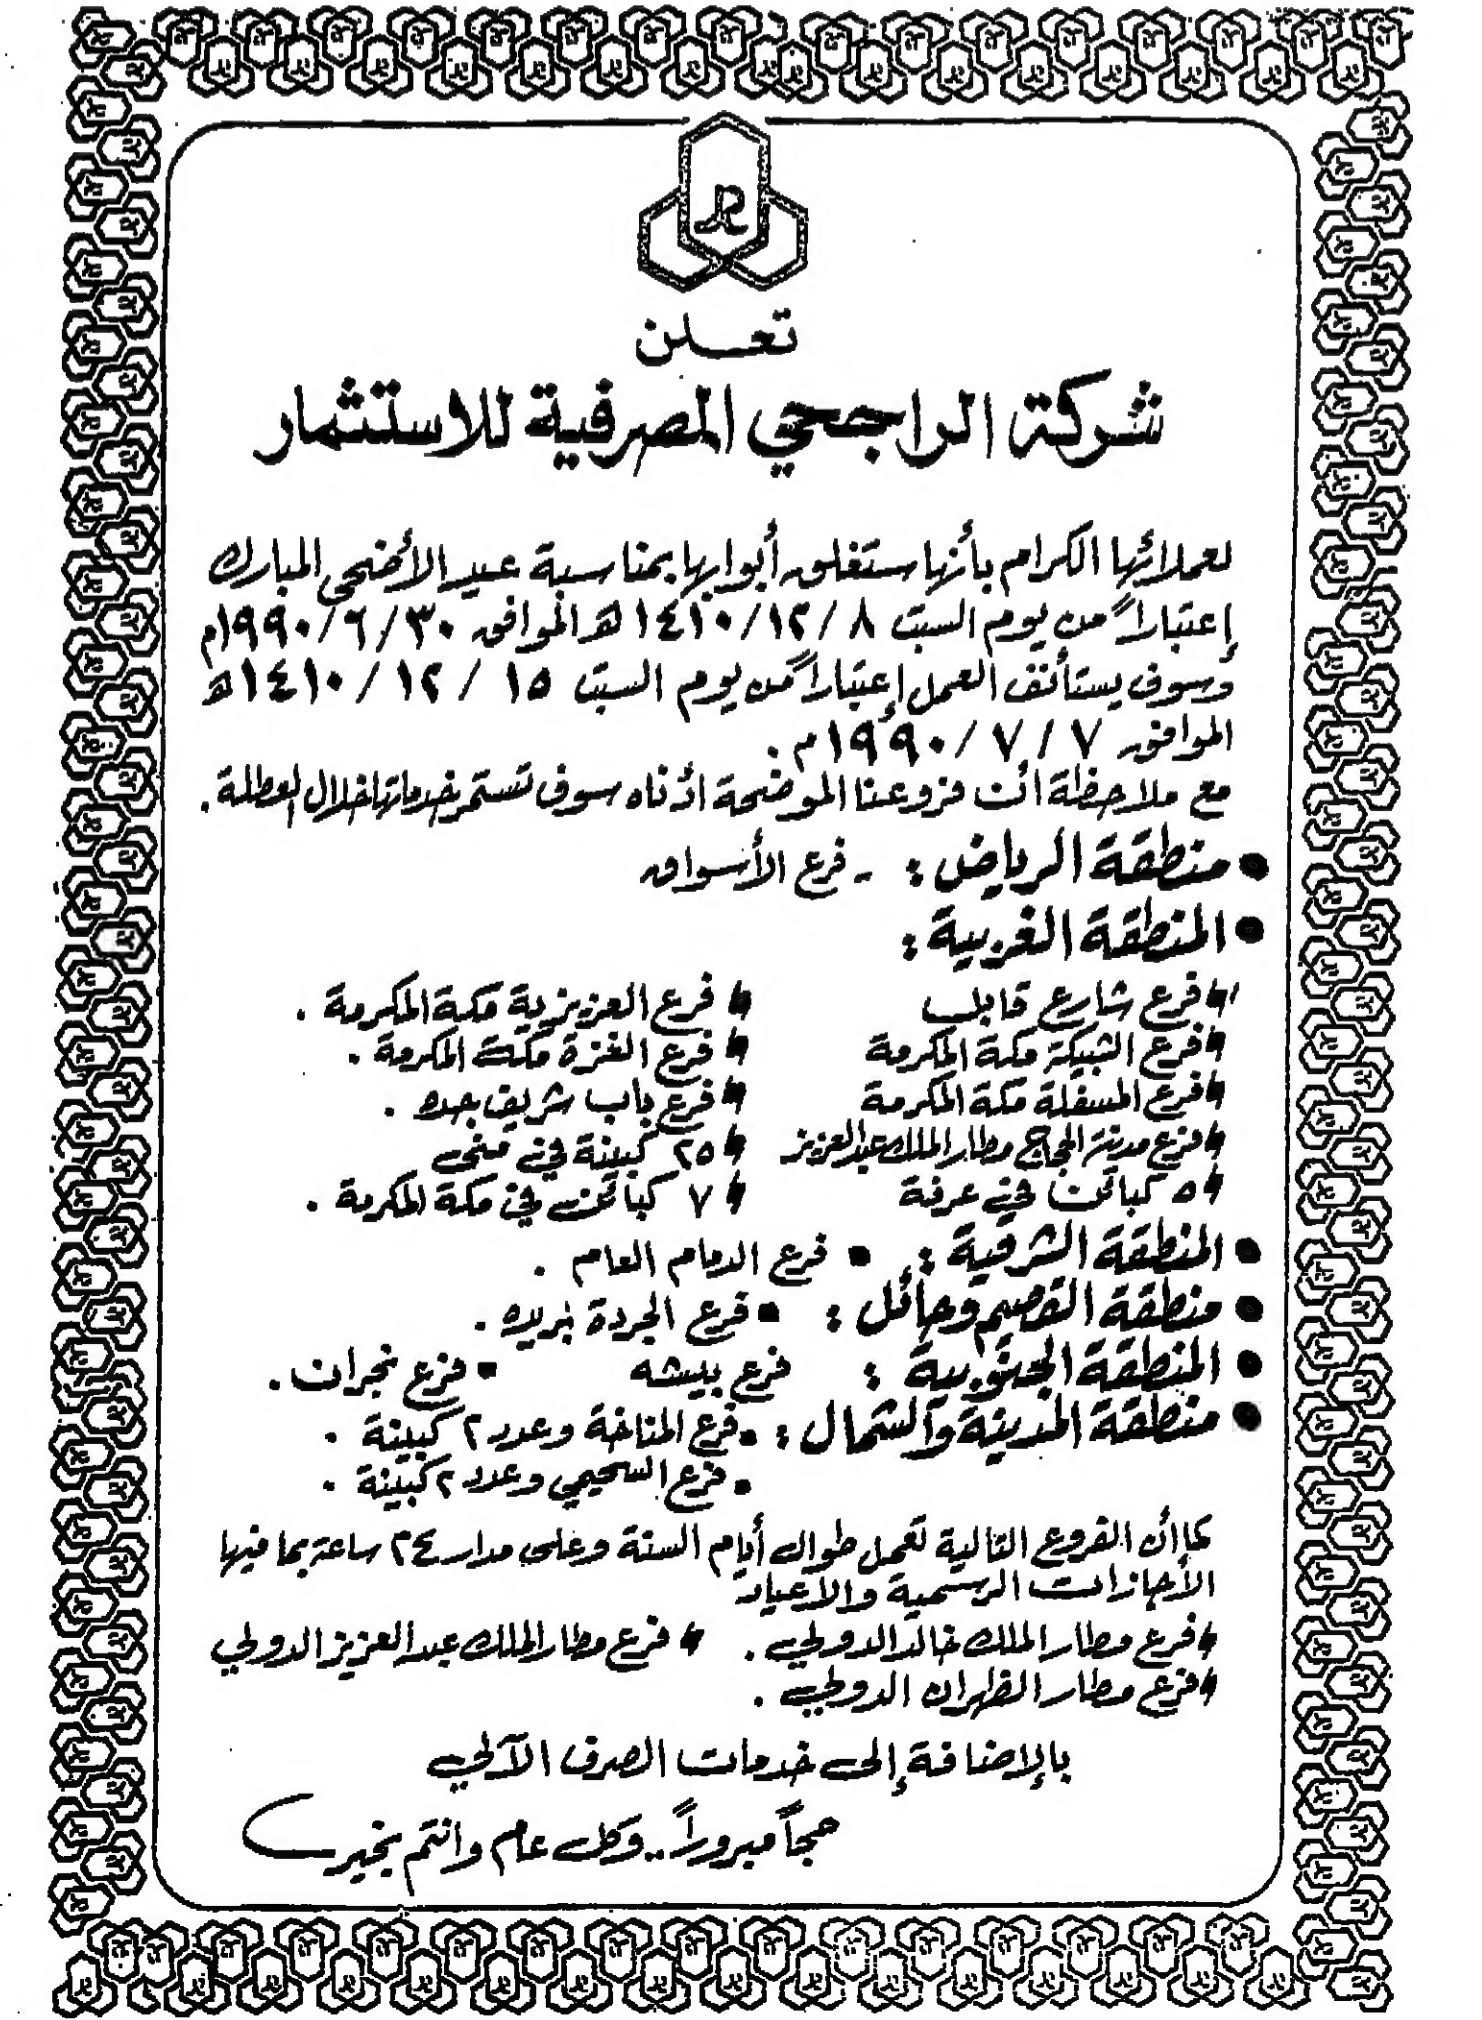 تعلن
شركة الراجحي المصرفية للاستثمار
لعملائها الكرام بأنها ستغلق أبوابها بمناسبة عيد الأضحى المبارك
إعتباراً من يوم السبت ٨ /١٤١٠/١٢هـ الموافق ١٩٩٠/٦/٣٠م
وسوف يستأنف العمل إعتباراً من يوم السبت ١٥ / ١٢ /١٤١٠هـ
الموافق ٧ / ٧ /١٩٩٠م .
مع ملاحظة أن فروعنا الموضحة أدناه سوف تستمر خدماتها خلال العطلة .
• منطقة الرياض : - فرع الأسواق
• المنطقة الغربية :
* فرع شارع قابل * فرع العزيزية مكة المكرمة .
* فرع الشبيكة مكة المكرمة * فرع الغزة مكة المكرمة .
* فرع المسفلة مكة المكرمة * فرع باب شريف جده .
* فرع مدينة الحجاج مطار الملك عبدالعزيز * ٢٥ كبينة في منى
* ٥ كبائن في عرفة * ٧ كبائن في مكة المكرمة .
• المنطقة الشرقية : ▪ فرع الدمام العام .
• منطقة القصيم وحائل : ▪ فرع الجردة بريده .
• المنطقة الجنوبية : فرع بيشه ▪ فرع نجران .
• منطقة المدينة والشمال : ▪ فرع المناخة وعدد ٢ كبينة .
▪ فرع السحيمي وعدد ٢ كبينة .
كما أن الفروع التالية تعمل طوال أيام السنة وعلى مدار ٢٤ ساعة بما فيها
الأجازات الرسمية والأعياد
* فرع مطار الملك خالد الدولي . * فرع مطار الملك عبد العزيز الدولي
* فرع مطار الظهران الدولي .
بالإضافة إلى خدمات الصرف الآلي
حجاً مبروراً .. وكل عام وانتم بخير